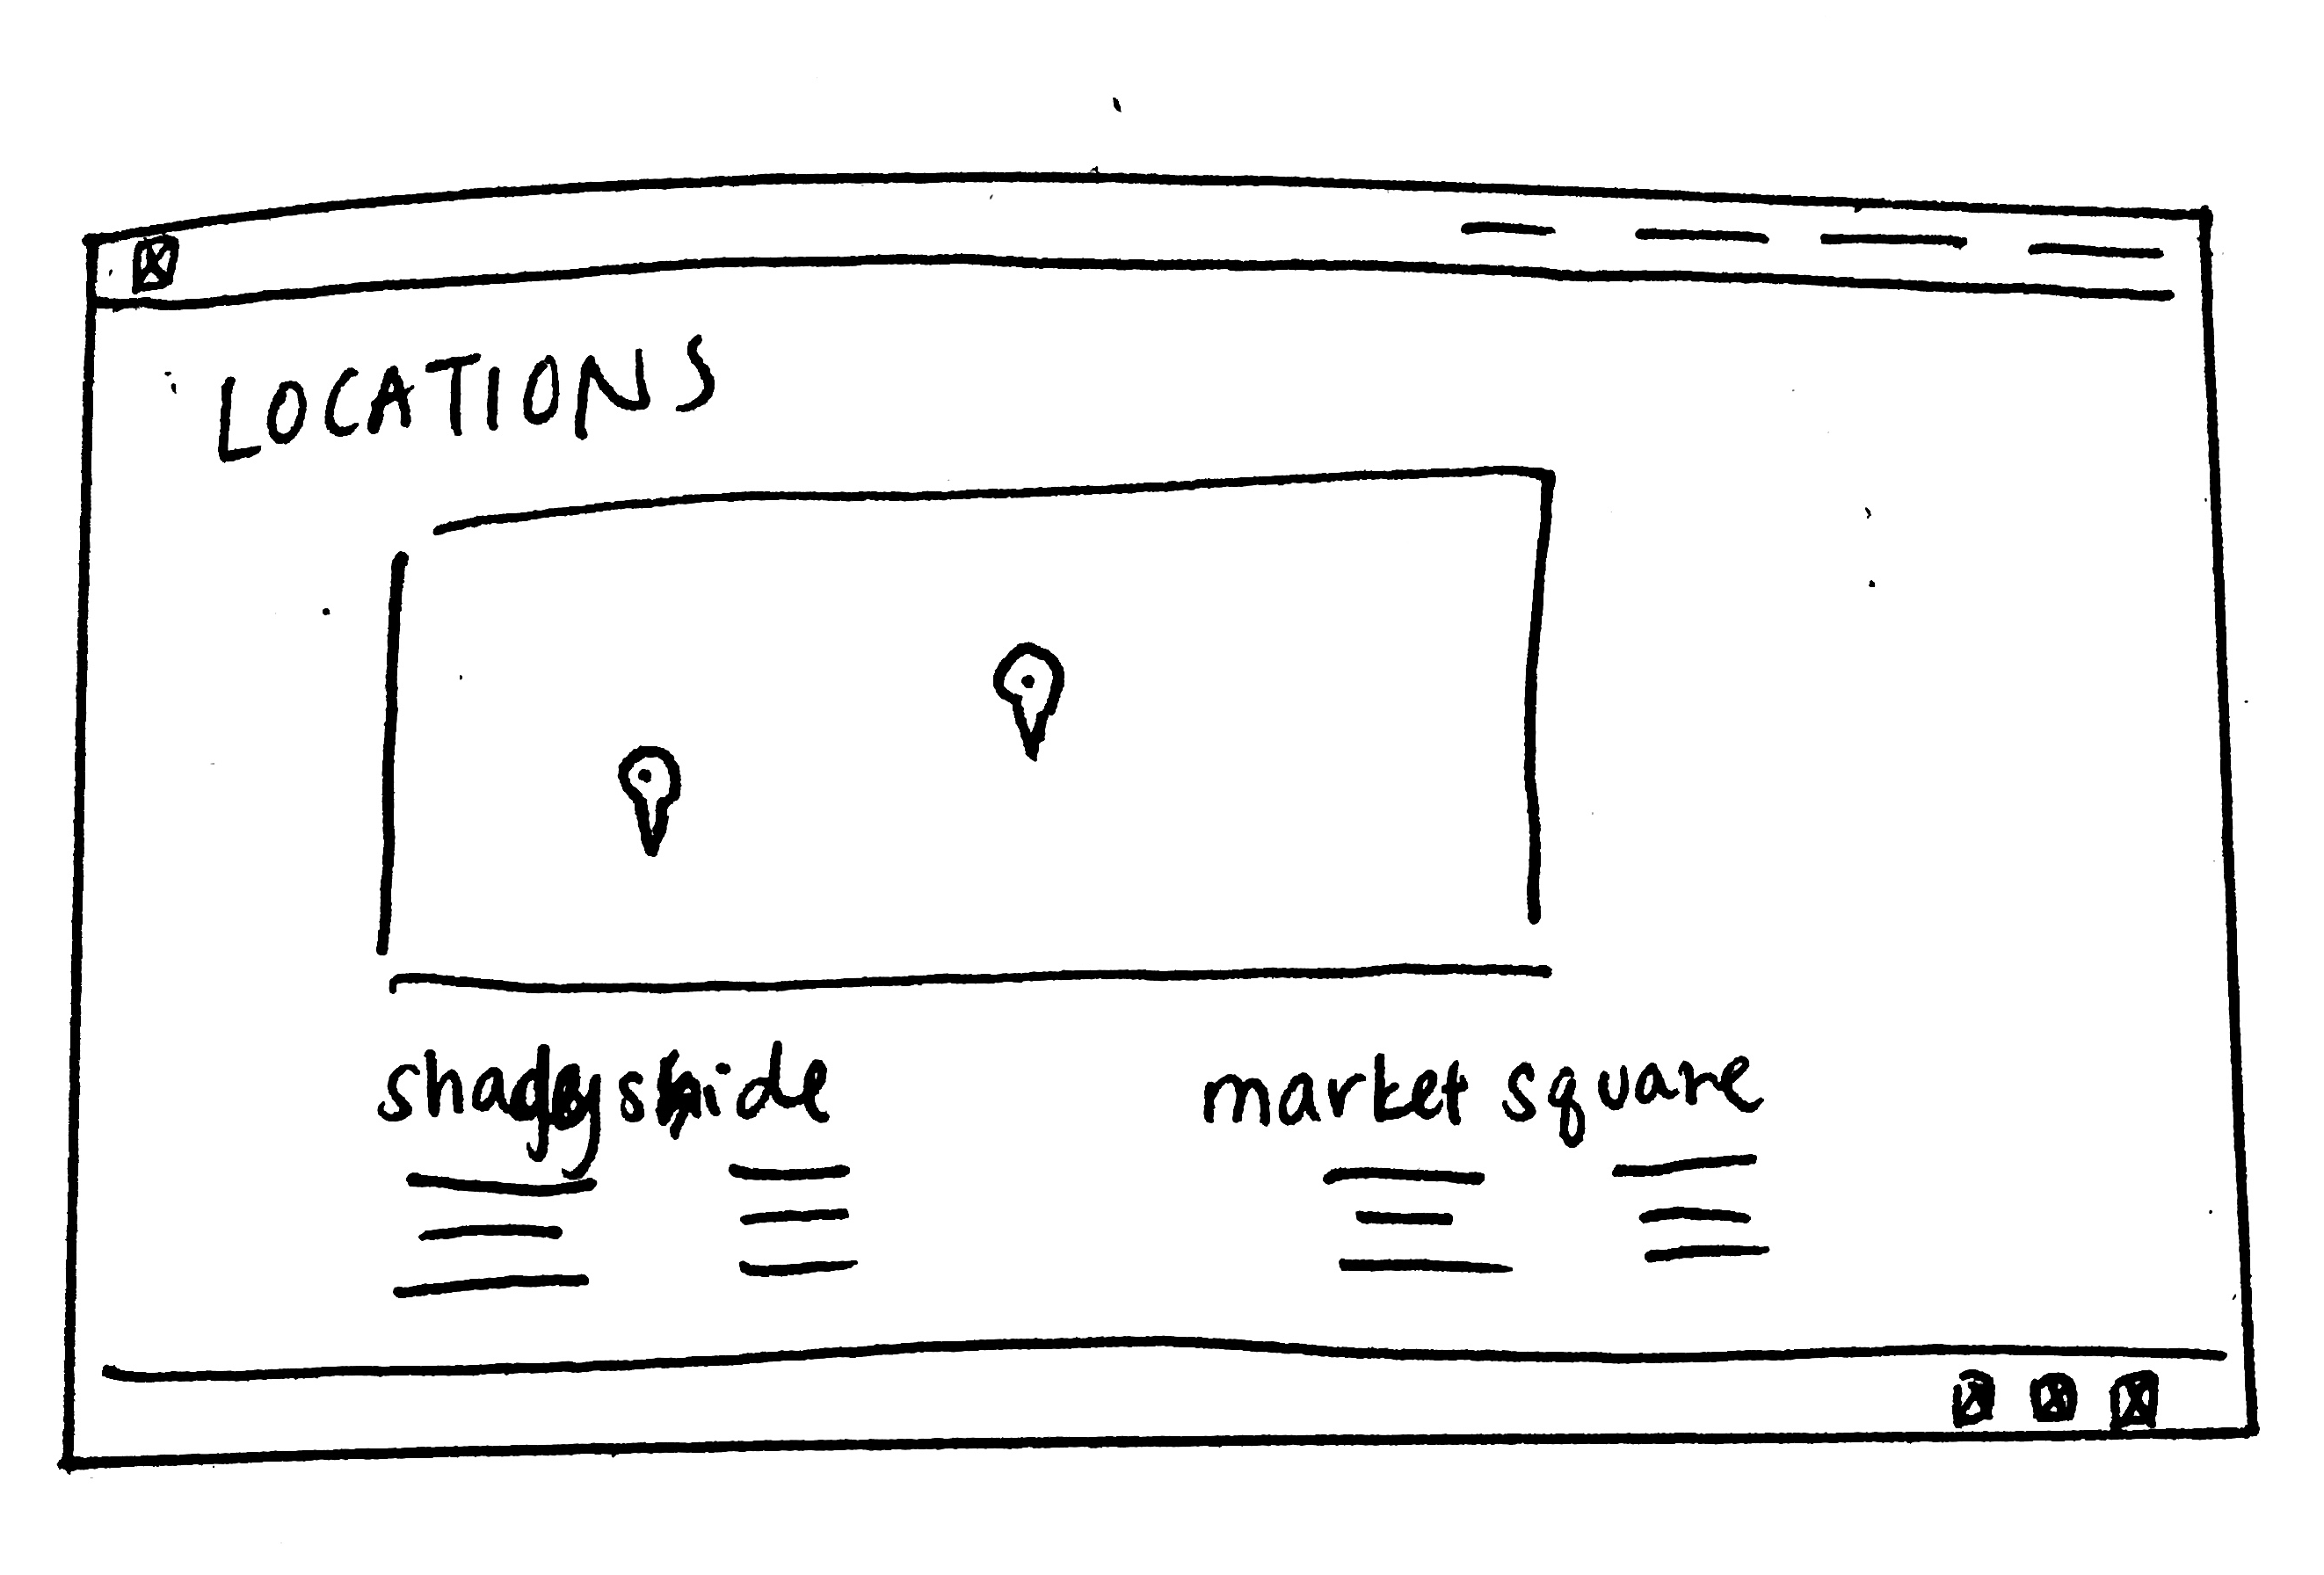 LOCATIONS
shadyside market square